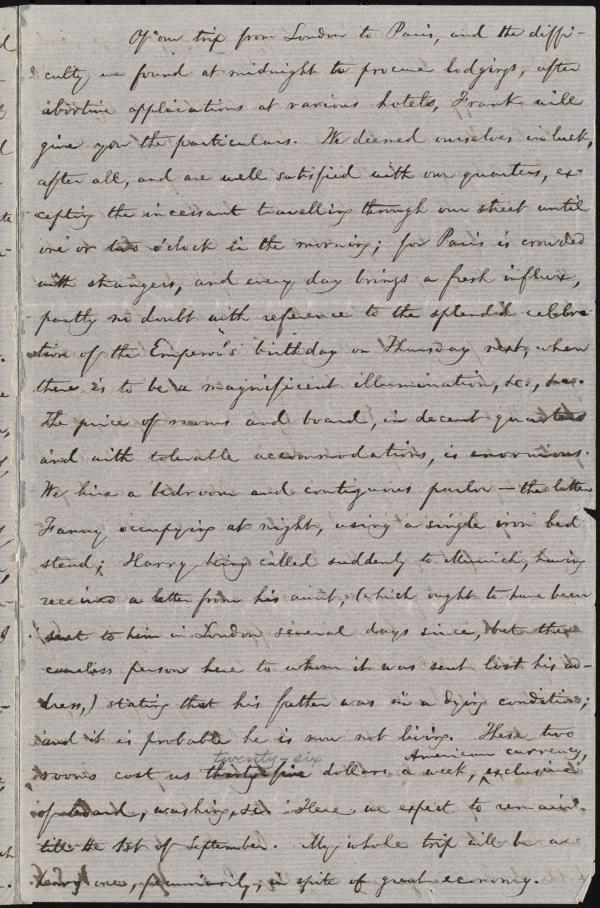 Of our trip from London to Paris, and the diffi-
culty we found at midnight to procure lodgings, after
abortive applications at various hotels, Frank will
give you the particulars. We deemed ourselves in luck,
after all, and are well satisfied with our quarters, ex-
cepting the incessant travelling through our street until
one or two o'clock in the morning; for Paris is crowded
with strangers, and every day brings a fresh influx,
partly no doubt with reference to the splendid celebra-
tion of the Emperor's birthday on Thursday next, when
there is to be a magnificent illumination, &c., &c.
The price of rooms and board, in decent quarters
and with tolerable accommodations, is enormous.
We hire a bedroom and contiguous parlor — the latter
Fanny occupying at night, using a single iron bed
stead; Harry being called suddenly to Munich, having
received a letter from his aunt, (which ought to have been
sent to him in London several days since, but the
careless person here to whom it was sent lost his ad-
dress,) stating that his father was in a dying condition;
and it is probable he is now not living. These two
twenty-six American currency,
rooms cost us thirty five dollars a week, exclusive
of board, washing, &c. Here we expect to remain
till the 1st of September. My whole trip will be a
heavy one, pecuniarily, in spite of great economy.